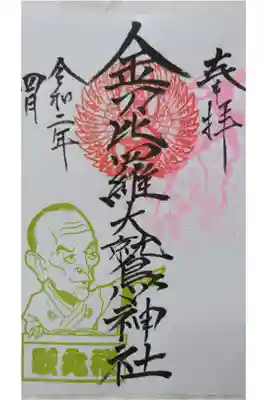 奉拝
金刀比羅大鷲神社
令和二年
四月
歌丸桜